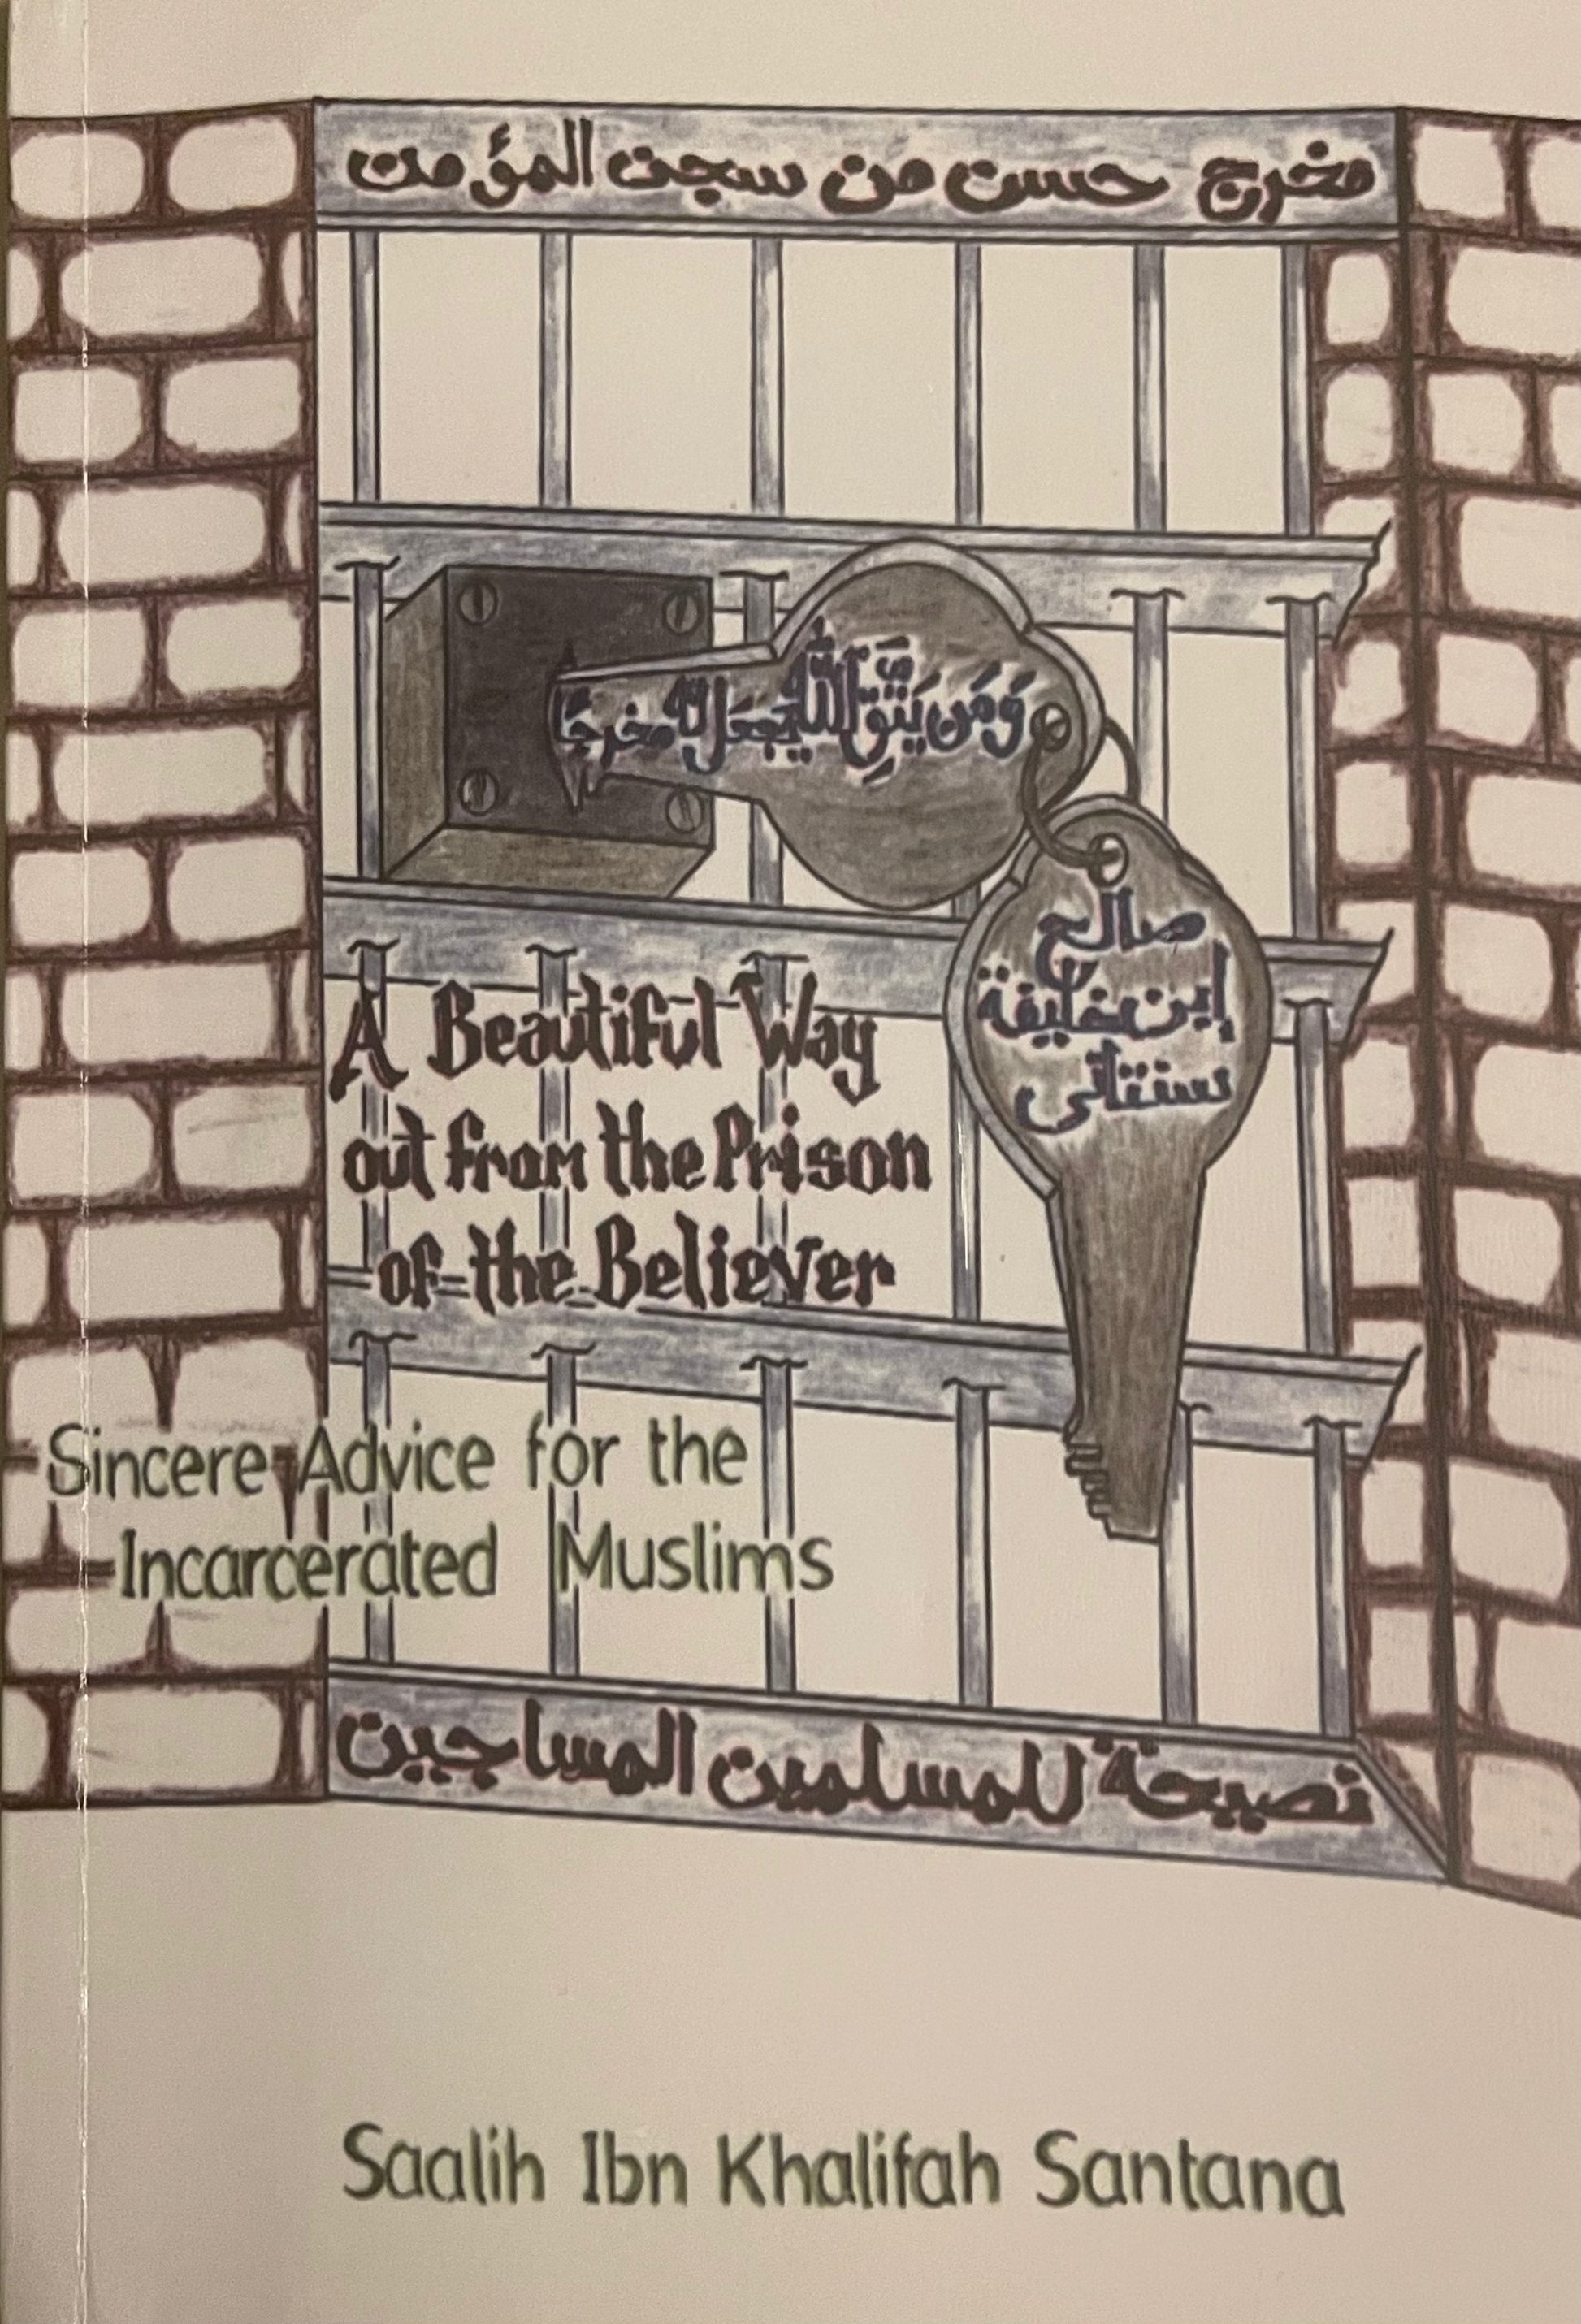 مخرج حسن من سجن المؤمن
وَمَن يَتَّقِ اللَّهَ يَجْعَل لَّهُ مخرجًا
صالح
إبن خليفة
سنتانى
A Beautiful Way
out from the Prison
of the Believer
Sincere Advice for the
Incarcerated Muslims
نصيحة للمسلمين المساجين
Saalih Ibn Khalifah Santana